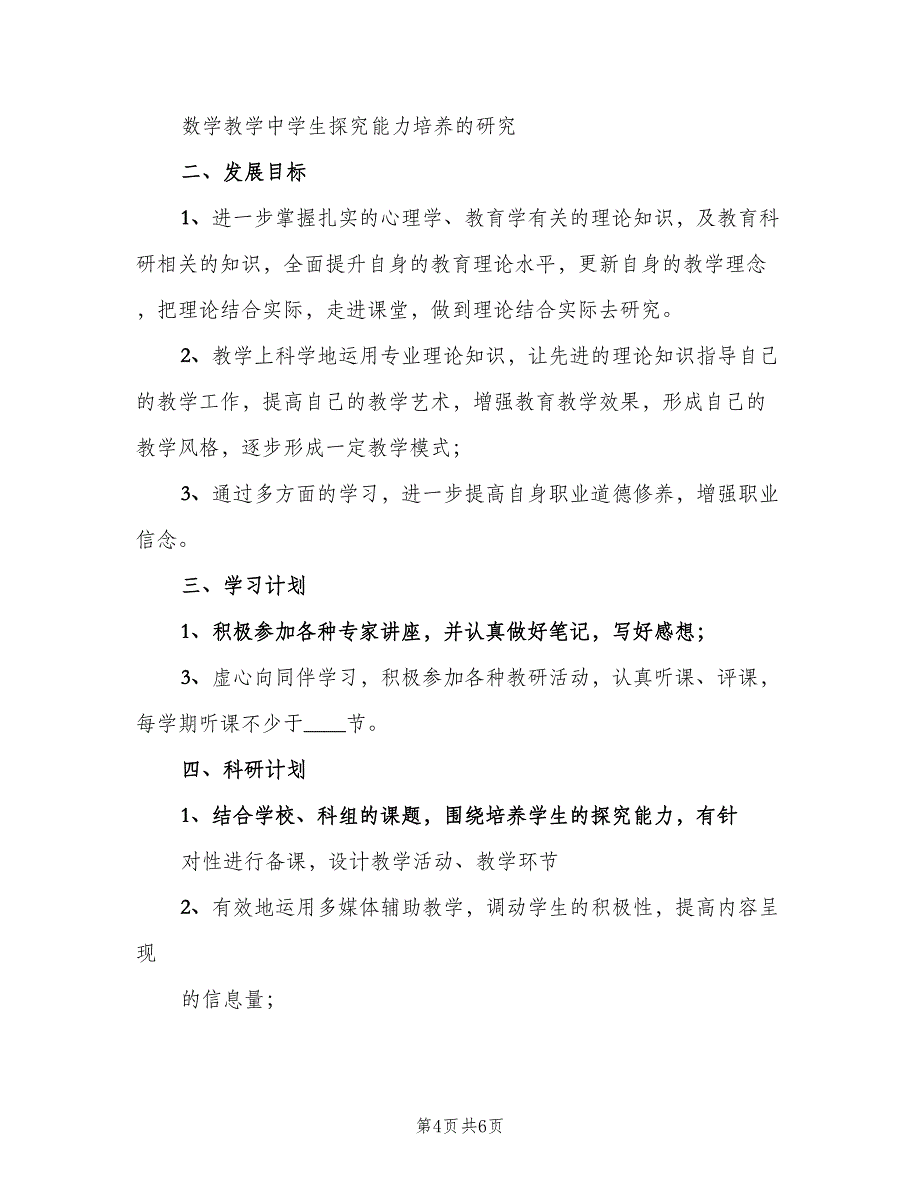 数学教学中学生探究能力培养的研究
二、发展目标
1、进一步掌握扎实的心理学、教育学有关的理论知识，及教育科
研相关的知识，全面提升自身的教育理论水平，更新自身的教学理念
，把理论结合实际，走进课堂，做到理论结合实际去研究。
2、教学上科学地运用专业理论知识，让先进的理论知识指导自己
的教学工作，提高自己的教学艺术，增强教育教学效果，形成自己的
教学风格，逐步形成一定教学模式；
3、通过多方面的学习，进一步提高自身职业道德修养，增强职业
信念。
三、学习计划
1、积极参加各种专家讲座，并认真做好笔记，写好感想；
3、虚心向同伴学习，积极参加各种教研活动，认真听课、评课，
每学期听课不少于____节。
四、科研计划
1、结合学校、科组的课题，围绕培养学生的探究能力，有针
对性进行备课，设计教学活动、教学环节
2、有效地运用多媒体辅助教学，调动学生的积极性，提高内容呈
现
的信息量；
第4页共6页